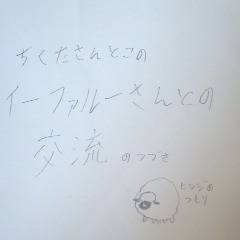 ちくたさんとこの
イーファルーさんとの
交流のつづき
ヒツジの
つもり